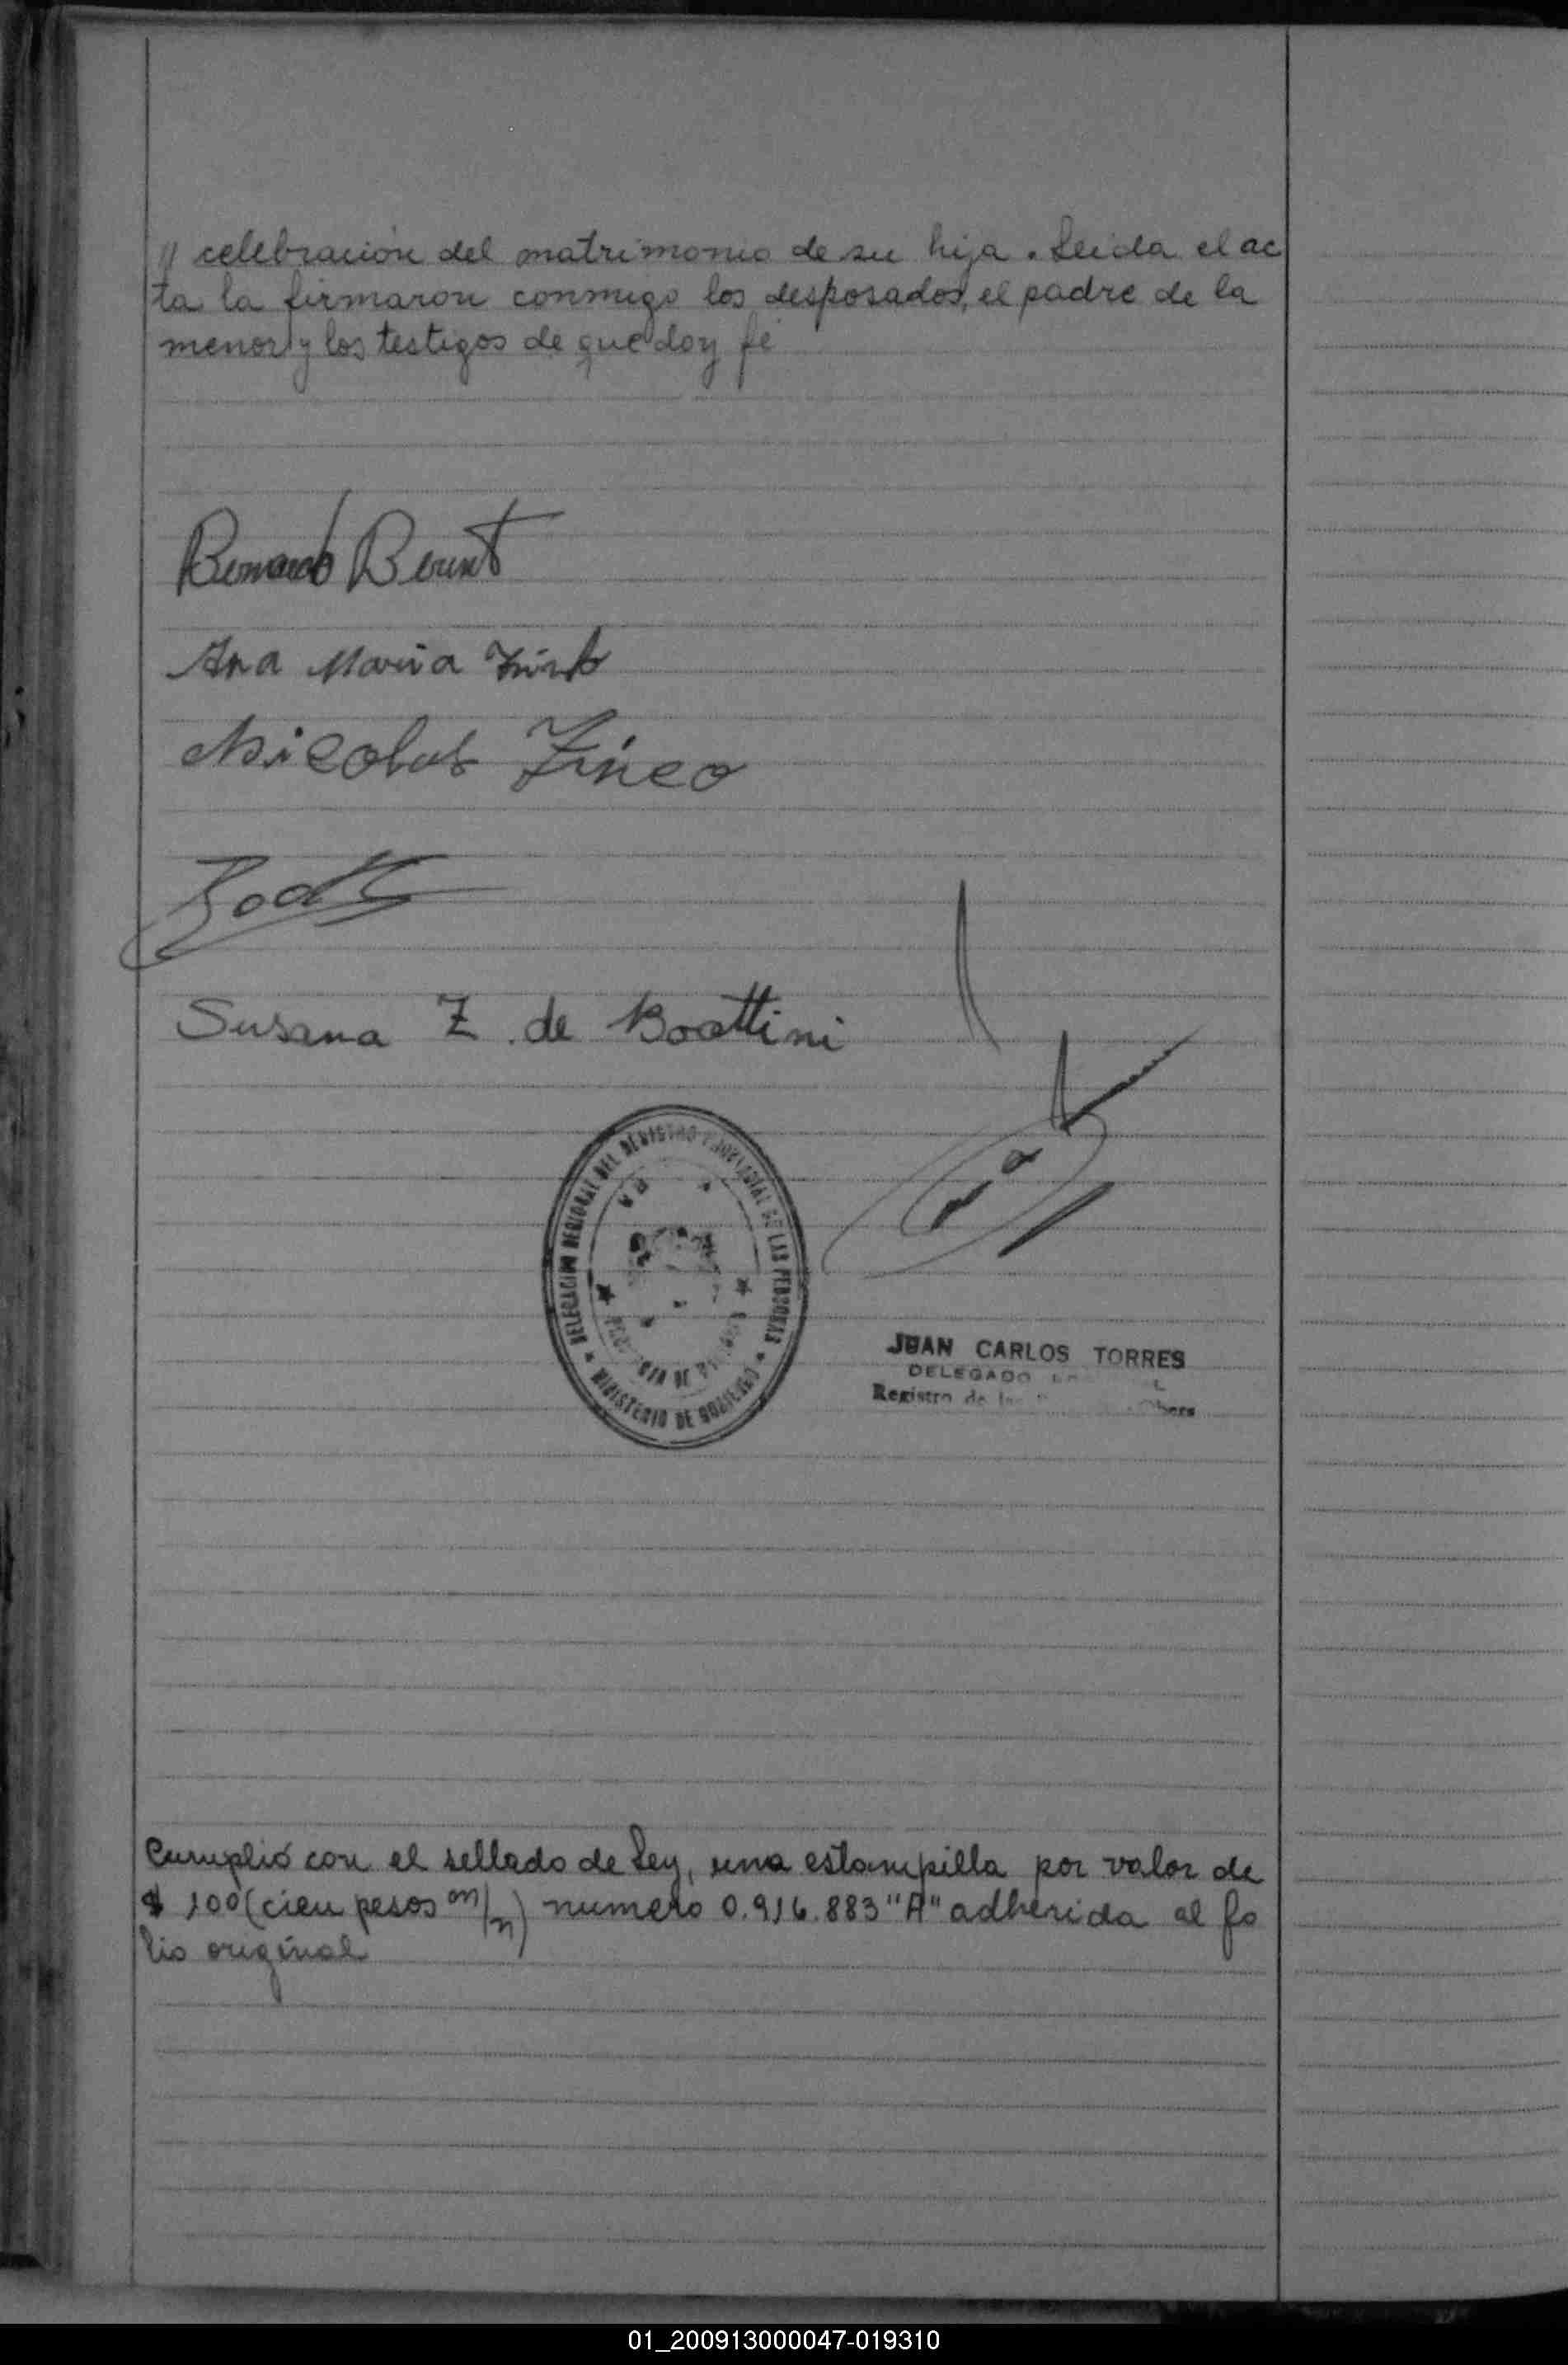 // celebración del matrimonio de su hija. Leida el ac
ta la firmaron conmigo los desposados, el padre de la
menor y los testigos de que doy fé
Bernardo
Ana Maria
Nicolas
Susana Z. de Boattini
DELEGACION REGIONAL DEL REGISTRO PROVINCIAL DE LAS PERSONAS
MINISTERIO DE GOBIERNO
JUAN CARLOS TORRES
DELEGADO
Registro de las
Cumplió con el sellado de Ley, una estampilla por valor de
$ 100 (cien pesos m/n) numero 0.916.883 "A" adherida al fo
lio original
01_200913000047-019310